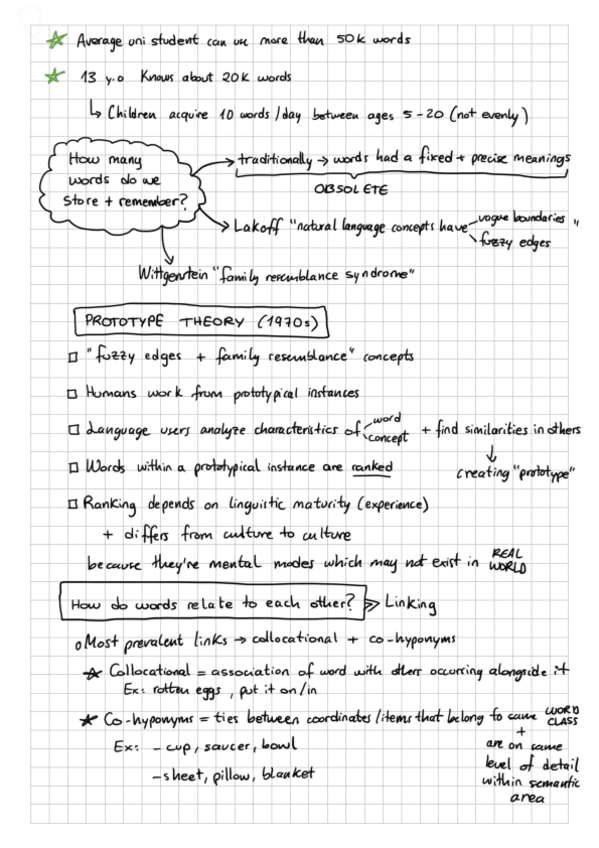 Average uni student can use more than 50k words
13 y.o Knows about 20k words
Children acquire 10 words/day between ages 5-20 (not evenly)
How many
words do we
store + remember?
traditionally → words had a fixed + precise meanings
OBSOLETE
Lakoff "natural language concepts have vague boundaries "
fuzzy edges
Wittgenstein "family resemblance syndrome"
PROTOTYPE THEORY (1970s)
"fuzzy edges + family resemblance" concepts
Humans work from prototypical instances
Language users analyze characteristics of word + find similarities in others
concept
creating "prototype"
Words within a prototypical instance are ranked
Ranking depends on linguistic maturity (experience)
+ differs from culture to culture
because they're mental modes which may not exist in REAL
WORLD
How do words relate to each other? ⇒ Linking
Most prevalent links → collocational + co-hyponyms
Collocational = association of word with others occurring alongside it
Ex: rotten eggs, put it on/in
Co-hyponyms = ties between coordinates/items that belong to same WORD
CLASS
+
are on same
level of detail
within semantic
area
Ex: - cup, saucer, bowl
- sheet, pillow, blanket